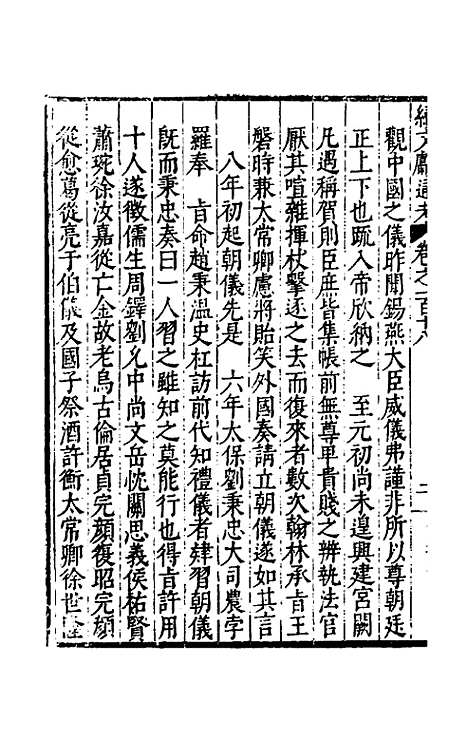 續文獻通考 卷之一百十八 二
觀中國之儀昨聞錫燕大臣威儀弗謹非所以尊朝廷
正上下也疏入帝欣納之 至元初尚未遑興建宮闕
凡遇稱賀則臣庶皆集帳前無尊卑貴賤之辨執法官
厭其喧雜揮杖擊逐之去而復來者數次翰林承旨王
磐時兼太常卿慮將貽笑外國奏請立朝儀遂如其言
八年初起朝儀先是 六年太保劉秉忠大司農孛
羅奉 旨命趙秉溫史杠訪前代知禮儀者肄習朝儀
既而秉忠奏曰一人習之雖知之莫能行也得旨許用
十人遂徵儒生周鐸劉允中尚文岳忱關思義侯祐賢
蕭琬徐汝嘉從亡金故老烏古倫居貞完顏復昭完顏
從愈葛從亮于伯儀及國子祭酒許衡太常卿徐世隆